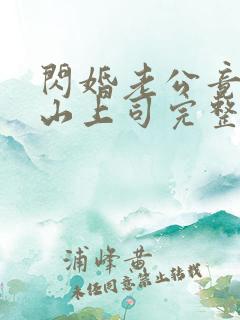 閃婚老公竟
山上司完整
浦峰黄
未任同意禁止转载